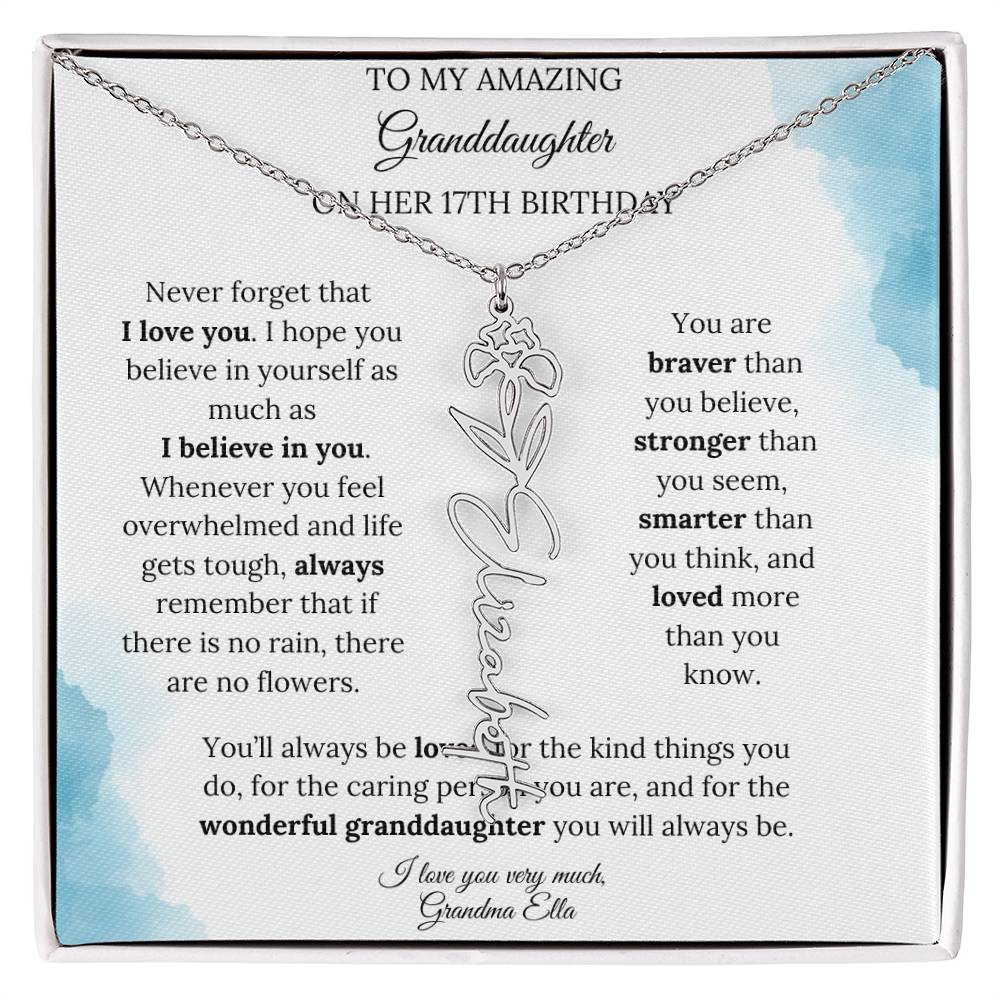 TO MY AMAZING
Granddaughter
ON HER 17TH BIRTHDAY
Never forget that
I love you. I hope you
believe in yourself as
much as
I believe in you.
Whenever you feel
overwhelmed and life
gets tough, always
remember that if
there is no rain, there
are no flowers.
You are
braver than
you believe,
stronger than
you seem,
smarter than
you think, and
loved more
than you
know.
Elizabeth
You’ll always be loved for the kind things you
do, for the caring person you are, and for the
wonderful granddaughter you will always be.
I love you very much,
Grandma Ella